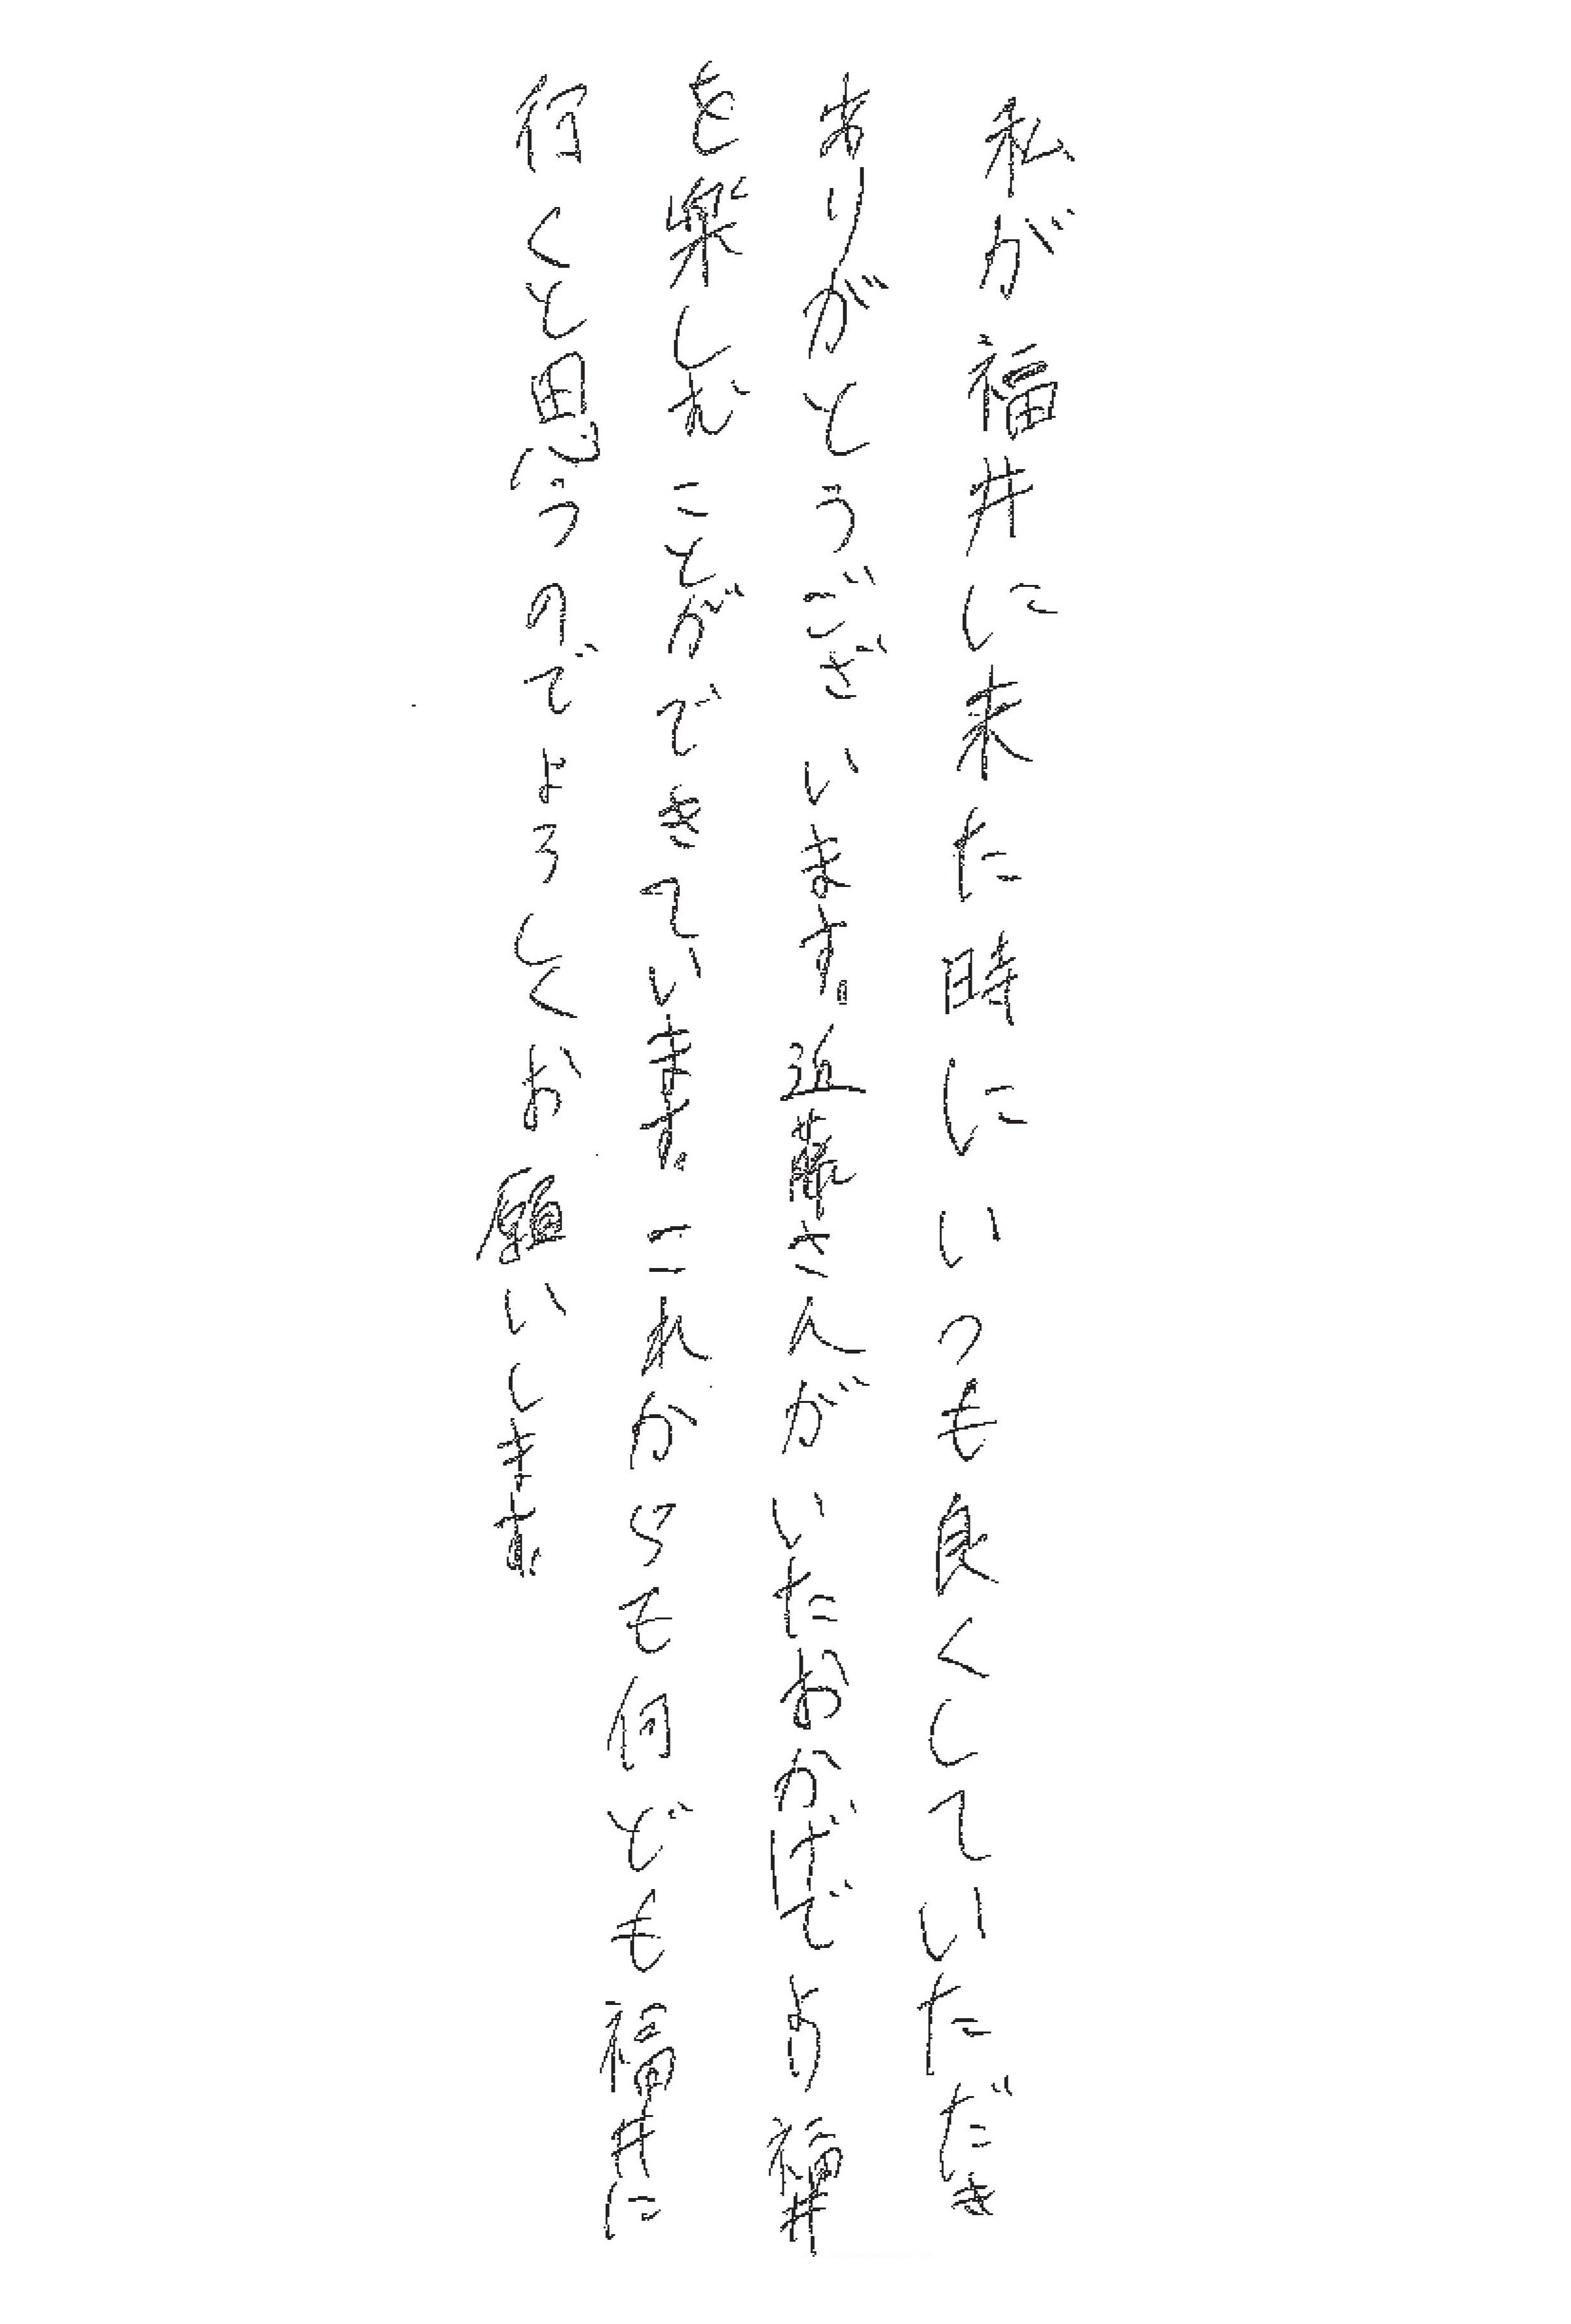 私が福井に来た時にいつも良くしていただき
ありがとうございます。近藤さんがいたおかげでより福井
を楽しむことができています。これからも何ども福井に
行くと思うのでよろしくお願いします。